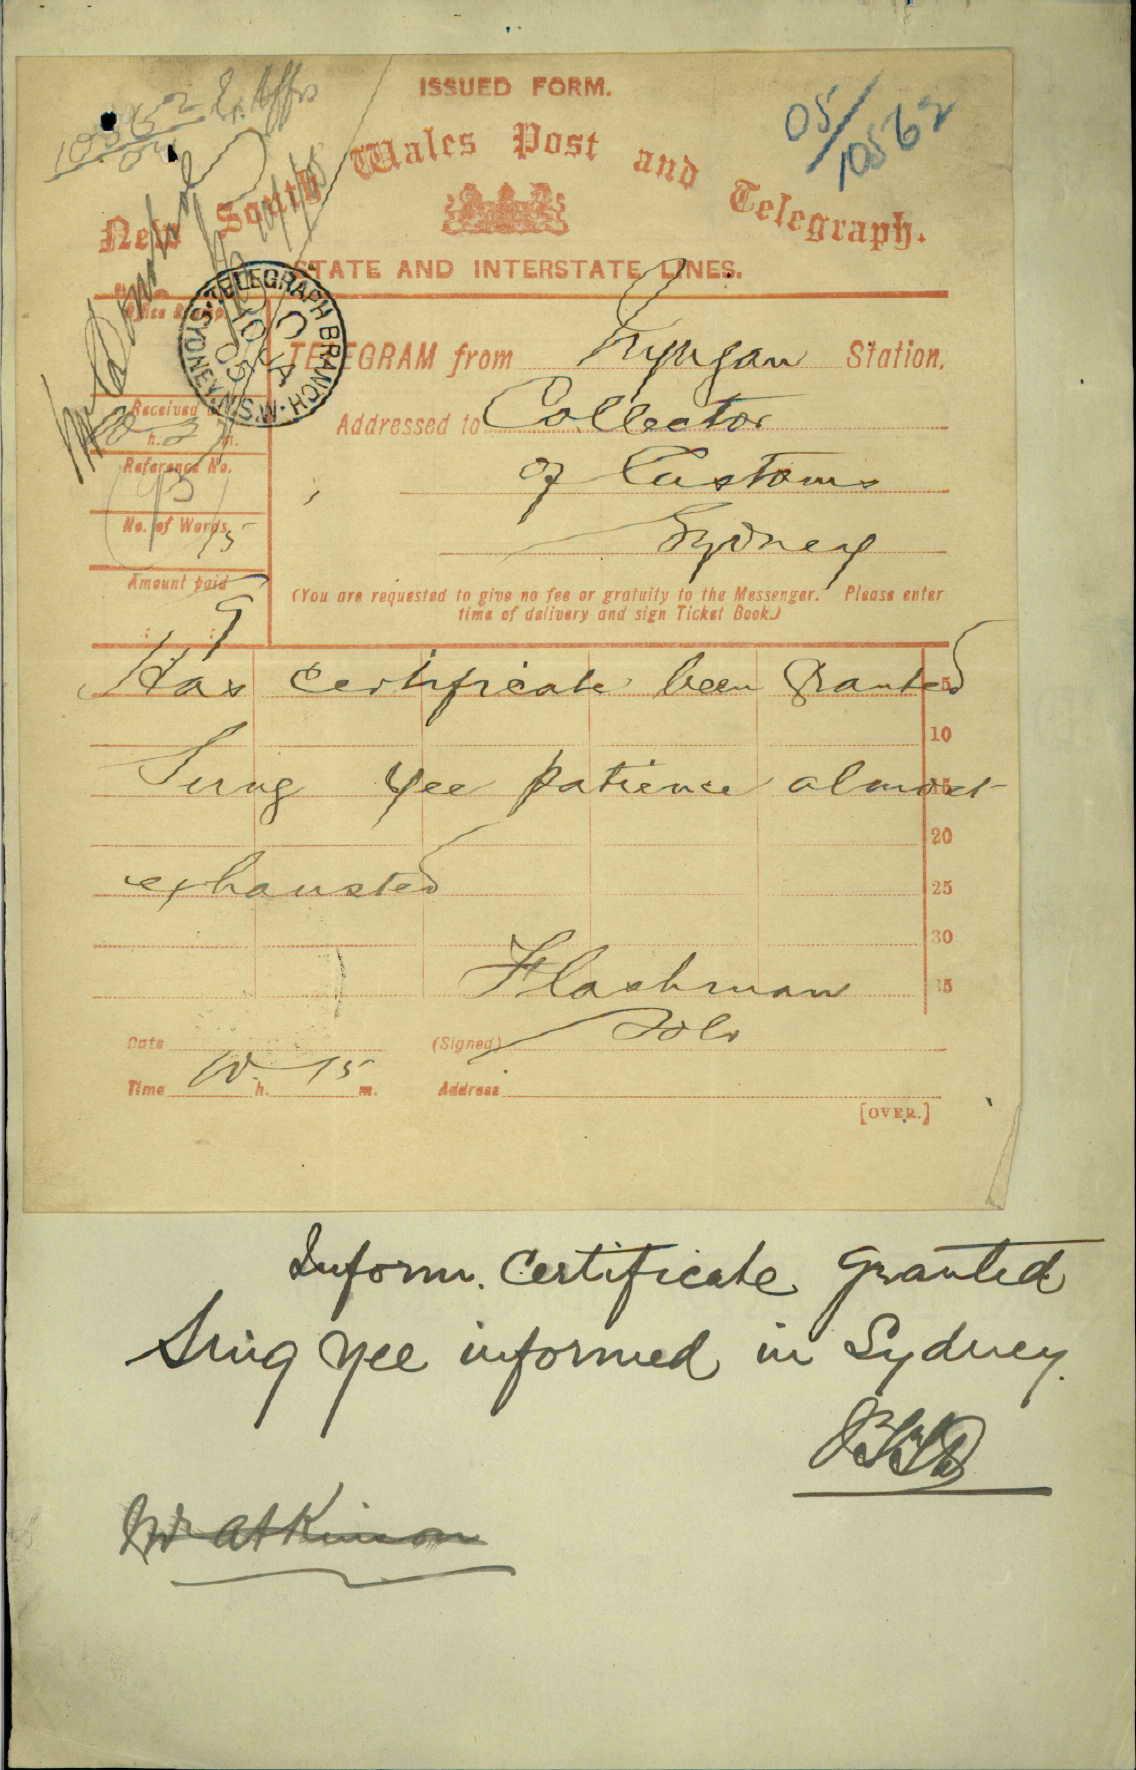 ISSUED FORM.
05/10562
New South Wales Post and Telegraph.
STATE AND INTERSTATE LINES.
TELEGRAPH BRANCH. SYDNEY. N.S.W.
C
10 JA
05
TELEGRAM from Nyngan Station.
Addressed to Collector
of Customs
Sydney
Received
h. m.
Reference No.
No. of Words
15
Amount paid
9
(You are requested to give no fee or gratuity to the Messenger. Please enter
time of delivery and sign Ticket Book.)
Has certificate been Granted 5
10
Sing Yee patience almost 15
20
exhausted 25
30
Flashman 35
Solr
Date
(Signed)
Time 10 h. 15 m.
Address
[OVER.]
Inform. Certificate granted
Sing Yee informed in Sydney.
Mr Atkinson